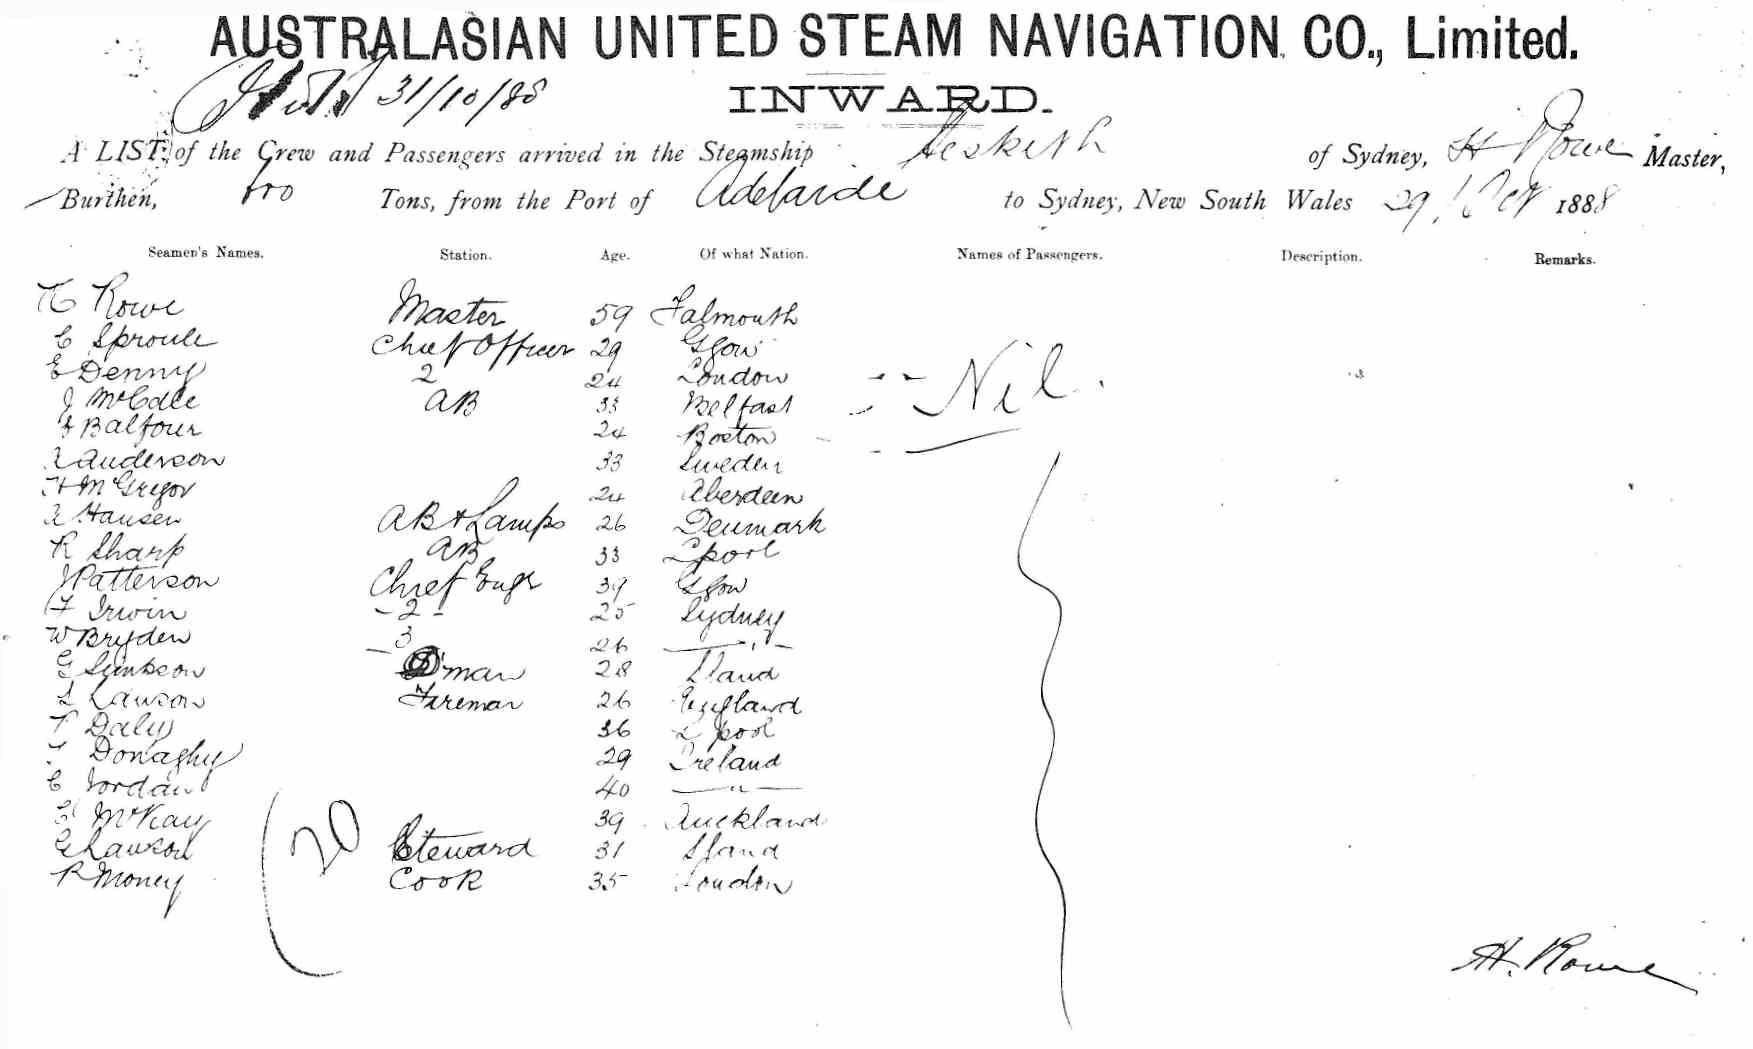 AUSTRALASIAN UNITED STEAM NAVIGATION CO., Limited.
31/10/88
INWARD.
A LIST of the Crew and Passengers arrived in the Steamship Hesketh of Sydney, H Rowe Master,
Burthen, Tons, from the Port of Adelaide to Sydney, New South Wales 29 Oct 1888
Seamen's Names. Station. Age. Of what Nation. Names of Passengers. Description. Remarks.
H Rowe Master 59 Falmouth
C Sproule Chief Officer 29 Gfow
E Denny 2 24 London
J McCole AB 33 Belfast
J Balfour 24 Boston
A Anderson 33 Sweden
H McGregor 24 Aberdeen
A Hansen AB & Lamps 26 Denmark
R Sharp AB 33 Lpool
J Patterson Chief Engr 39 Gfow
F Irwin - 2 - 25 Sydney
W Bryden - 3 26 — " —
G Simpson D'man 28 Sland
L Lawson Fireman 26 England
T Daly 36 L'pool
Donaghy 29 Ireland
C Jordan 40 — " —
McKay 39 Auckland
G Lawson Steward 31 Sland
R Money Cook 35 London
Nil
20
H. Rowe